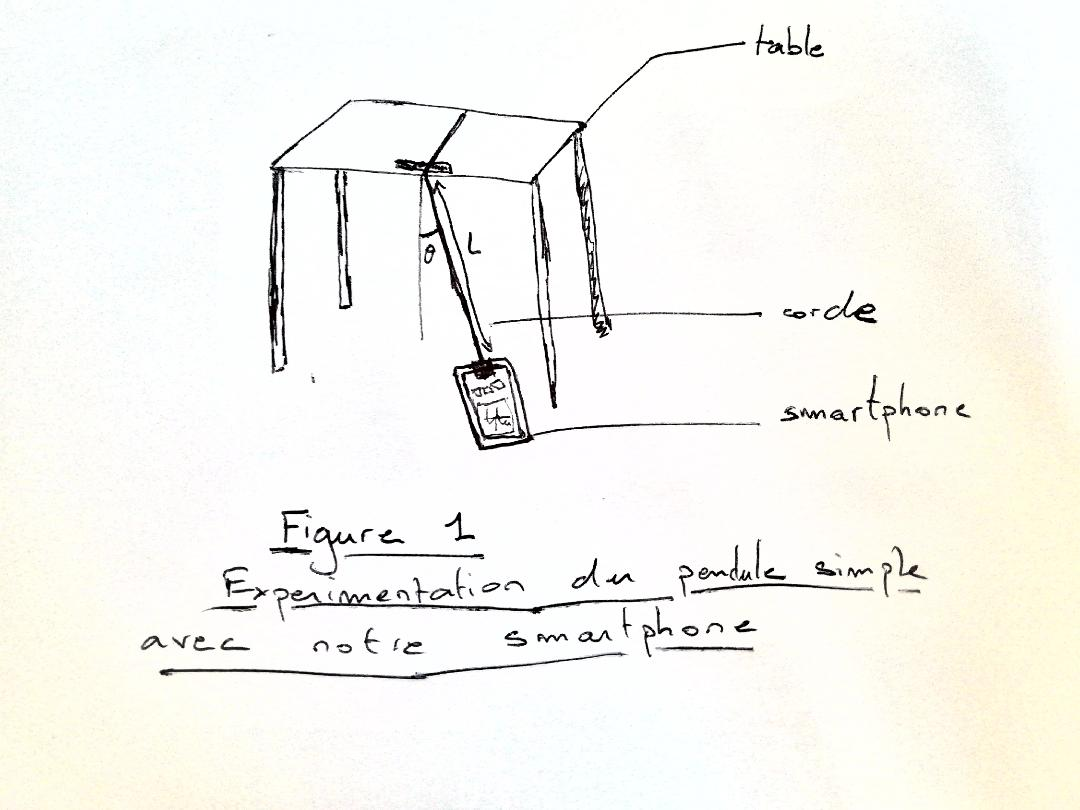 table
θ
L
corde
smartphone
Figure 1
Experimentation du pendule simple
avec notre smartphone